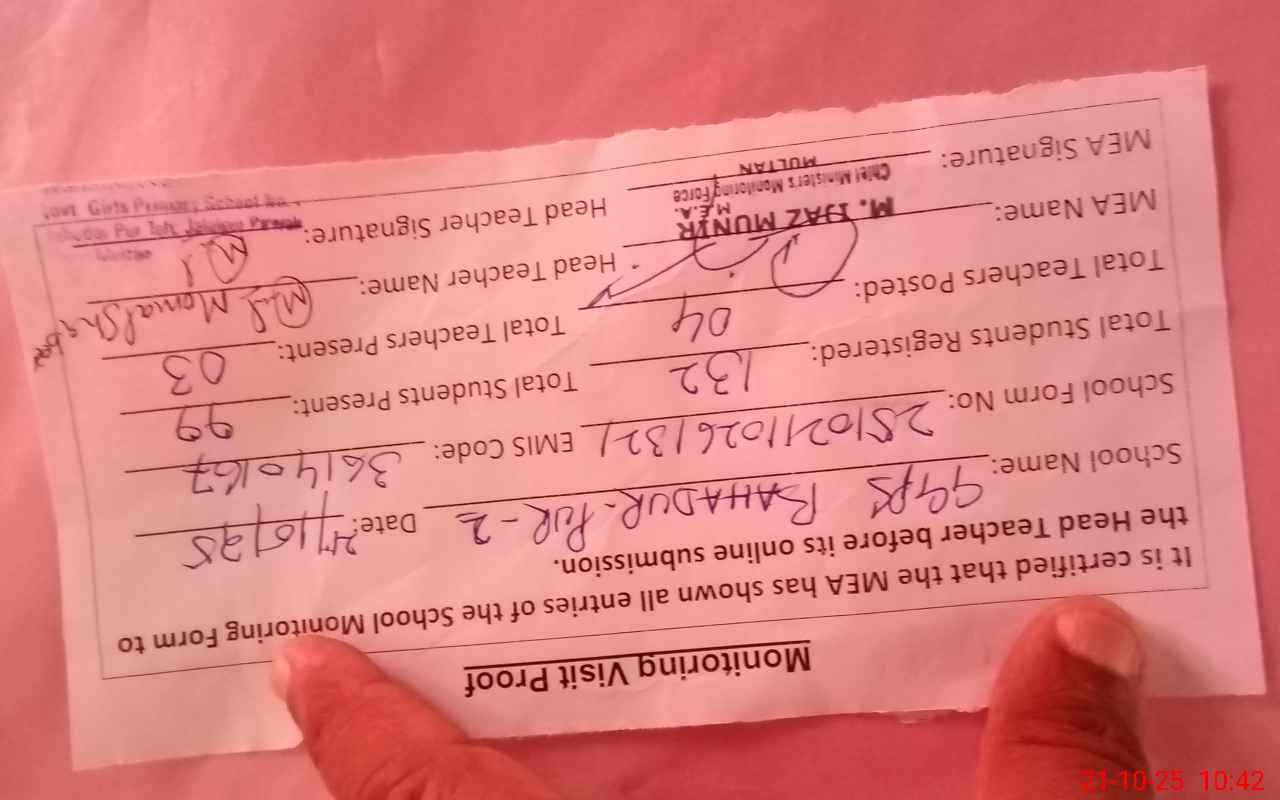 Monitoring Visit Proof
It is certified that the MEA has shown all entries of the School Monitoring Form to
the Head Teacher before its online submission.
School Name: GGPS BAHADUR-PUR-2 Date: 21/10/25
School Form No: EMIS Code: 36140167
Total Students Registered: 132 Total Students Present: 99
Total Teachers Posted: 04 Total Teachers Present: 03
MEA Name: M. IJAZ MUNIR Head Teacher Name:
M.E.A.
Chief Ministers Monitoring Force
MULTAN
MEA Signature: Head Teacher Signature:
Govt Girls Primary School No.
21-10-25 10:42